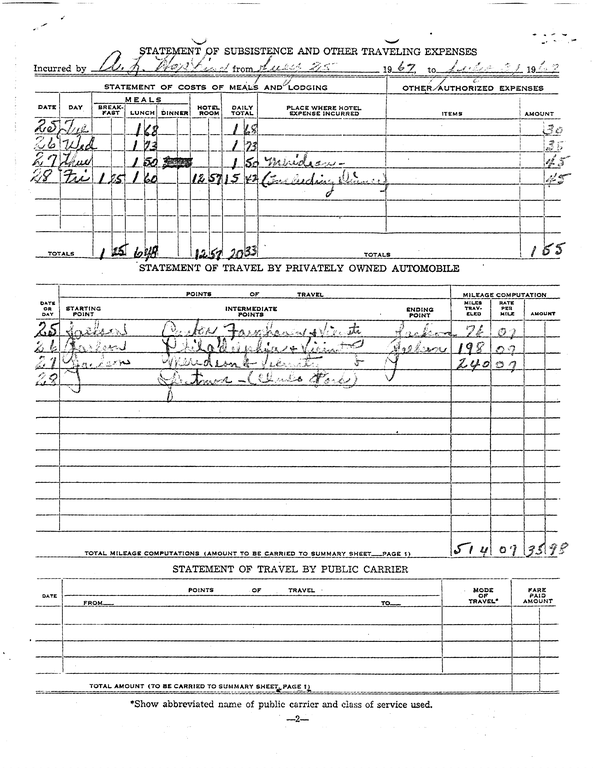 STATEMENT OF SUBSISTENCE AND OTHER TRAVELING EXPENSES
Incurred by A. L. Hopkins from July 25 1967 to July 31 1967
STATEMENT OF COSTS OF MEALS AND LODGING OTHER AUTHORIZED EXPENSES
MEALS
DATE DAY BREAK-FAST LUNCH DINNER HOTEL ROOM DAILY TOTAL PLACE WHERE HOTEL EXPENSE INCURRED ITEMS AMOUNT
25 Tue 1 68 1 68 30
26 Wed 1 73 1 73 35
27 Thur 1 50 1 50 Meridian - 45
28 Fri 1 25 1 60 12 57 15 42 (Including Dinner) 45
TOTALS 1 25 6 48 12 57 20 33 TOTALS 1 55
STATEMENT OF TRAVEL BY PRIVATELY OWNED AUTOMOBILE
POINTS OF TRAVEL MILEAGE COMPUTATION
DATE OR DAY STARTING POINT INTERMEDIATE POINTS ENDING POINT MILES TRAV-ELED RATE PER MILE AMOUNT
25 Jackson Canton Jackson 76 07
26 Jackson Philadelphia & Jackson 198 07
27 Jackson Meridian & Vicinity 240 07
28
TOTAL MILEAGE COMPUTATIONS (AMOUNT TO BE CARRIED TO SUMMARY SHEET—PAGE 1) 514 07 35 98
STATEMENT OF TRAVEL BY PUBLIC CARRIER
DATE POINTS OF TRAVEL MODE OF TRAVEL* FARE PAID AMOUNT
FROM— TO—
TOTAL AMOUNT (TO BE CARRIED TO SUMMARY SHEET, PAGE 1)
*Show abbreviated name of public carrier and class of service used.
—2—